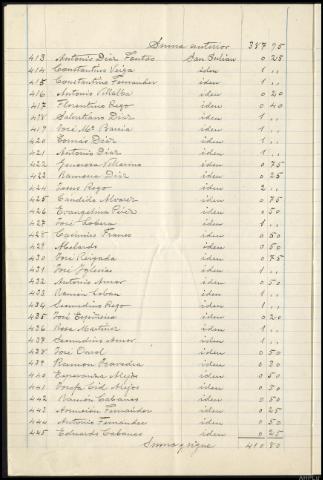 Suma anterior 387 95
413 Antonio Diaz Fontao San Julian 0 25
414 Constantino Veiga idem 1 ..
415 Constantino Fernandez idem 1 ..
416 Antonio Villalba idem 0 20
417 Florentino Rego idem 0 40
418 Saleriano Diaz idem 1 ..
419 José Mª Barcia idem 1 ..
420 Tomás Diaz idem 1 ..
421 Antonio Diaz idem 1 ..
422 Generosa Villarino idem 0 75
423 Ramona Diaz idem 0 25
424 Jesus Rego idem 2 ..
425 Candida Alvarez idem 0 75
426 Evangelina Pérez idem 0 50
427 José idem 1 ..
428 Casimiro Franco idem 0 50
429 Abelardo idem 0 50
430 José Reigada idem 0 75
431 José Iglesias idem 1 ..
432 Antonio Amor idem 0 50
433 Ramón idem 1 ..
434 Secundino Rego idem 1 ..
435 José Espiñeira idem 0 20
436 Rosa Martinez idem 1 ..
437 Secundino Amor idem 1 ..
438 José idem 0 50
439 Ramon idem 0 30
440 Alejos idem 0 50
441 Josefa Cid Alejos idem 0 50
442 Ramón Cabanas idem 0 50
443 Asunción Fernandez idem 0 25
444 Antonio Fernandez idem 0 50
445 Eduardo Cabanas idem 0 25
Suma y sigue 410 80